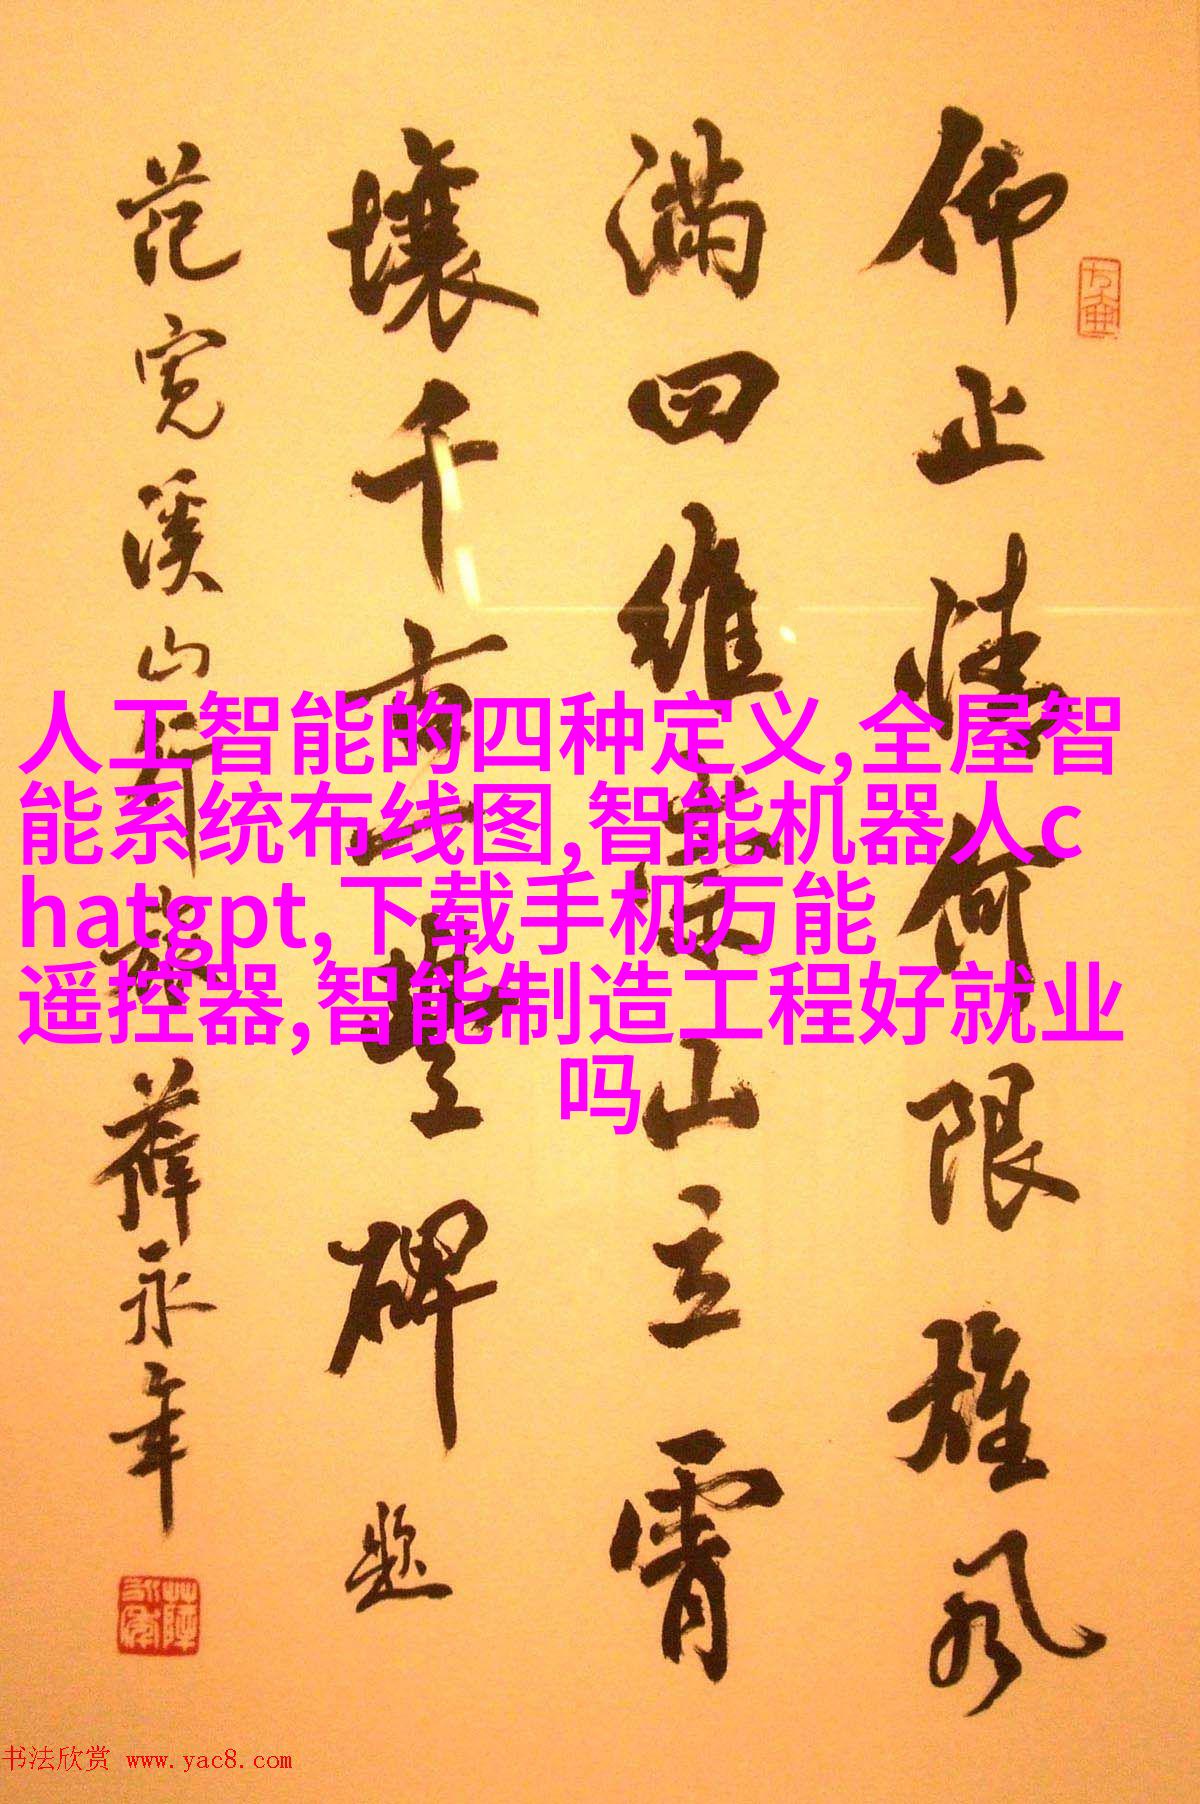 仰止情何限雄风
满四维崇山立霄
壤千古一丰碑题
范宽溪山行旅 薛永年
人工智能的四种定义,全屋智
能系统布线图,智能机器人c
hatgpt,下载手机万能
遥控器,智能制造工程好就业
吗
书法欣赏 www.yac8.com